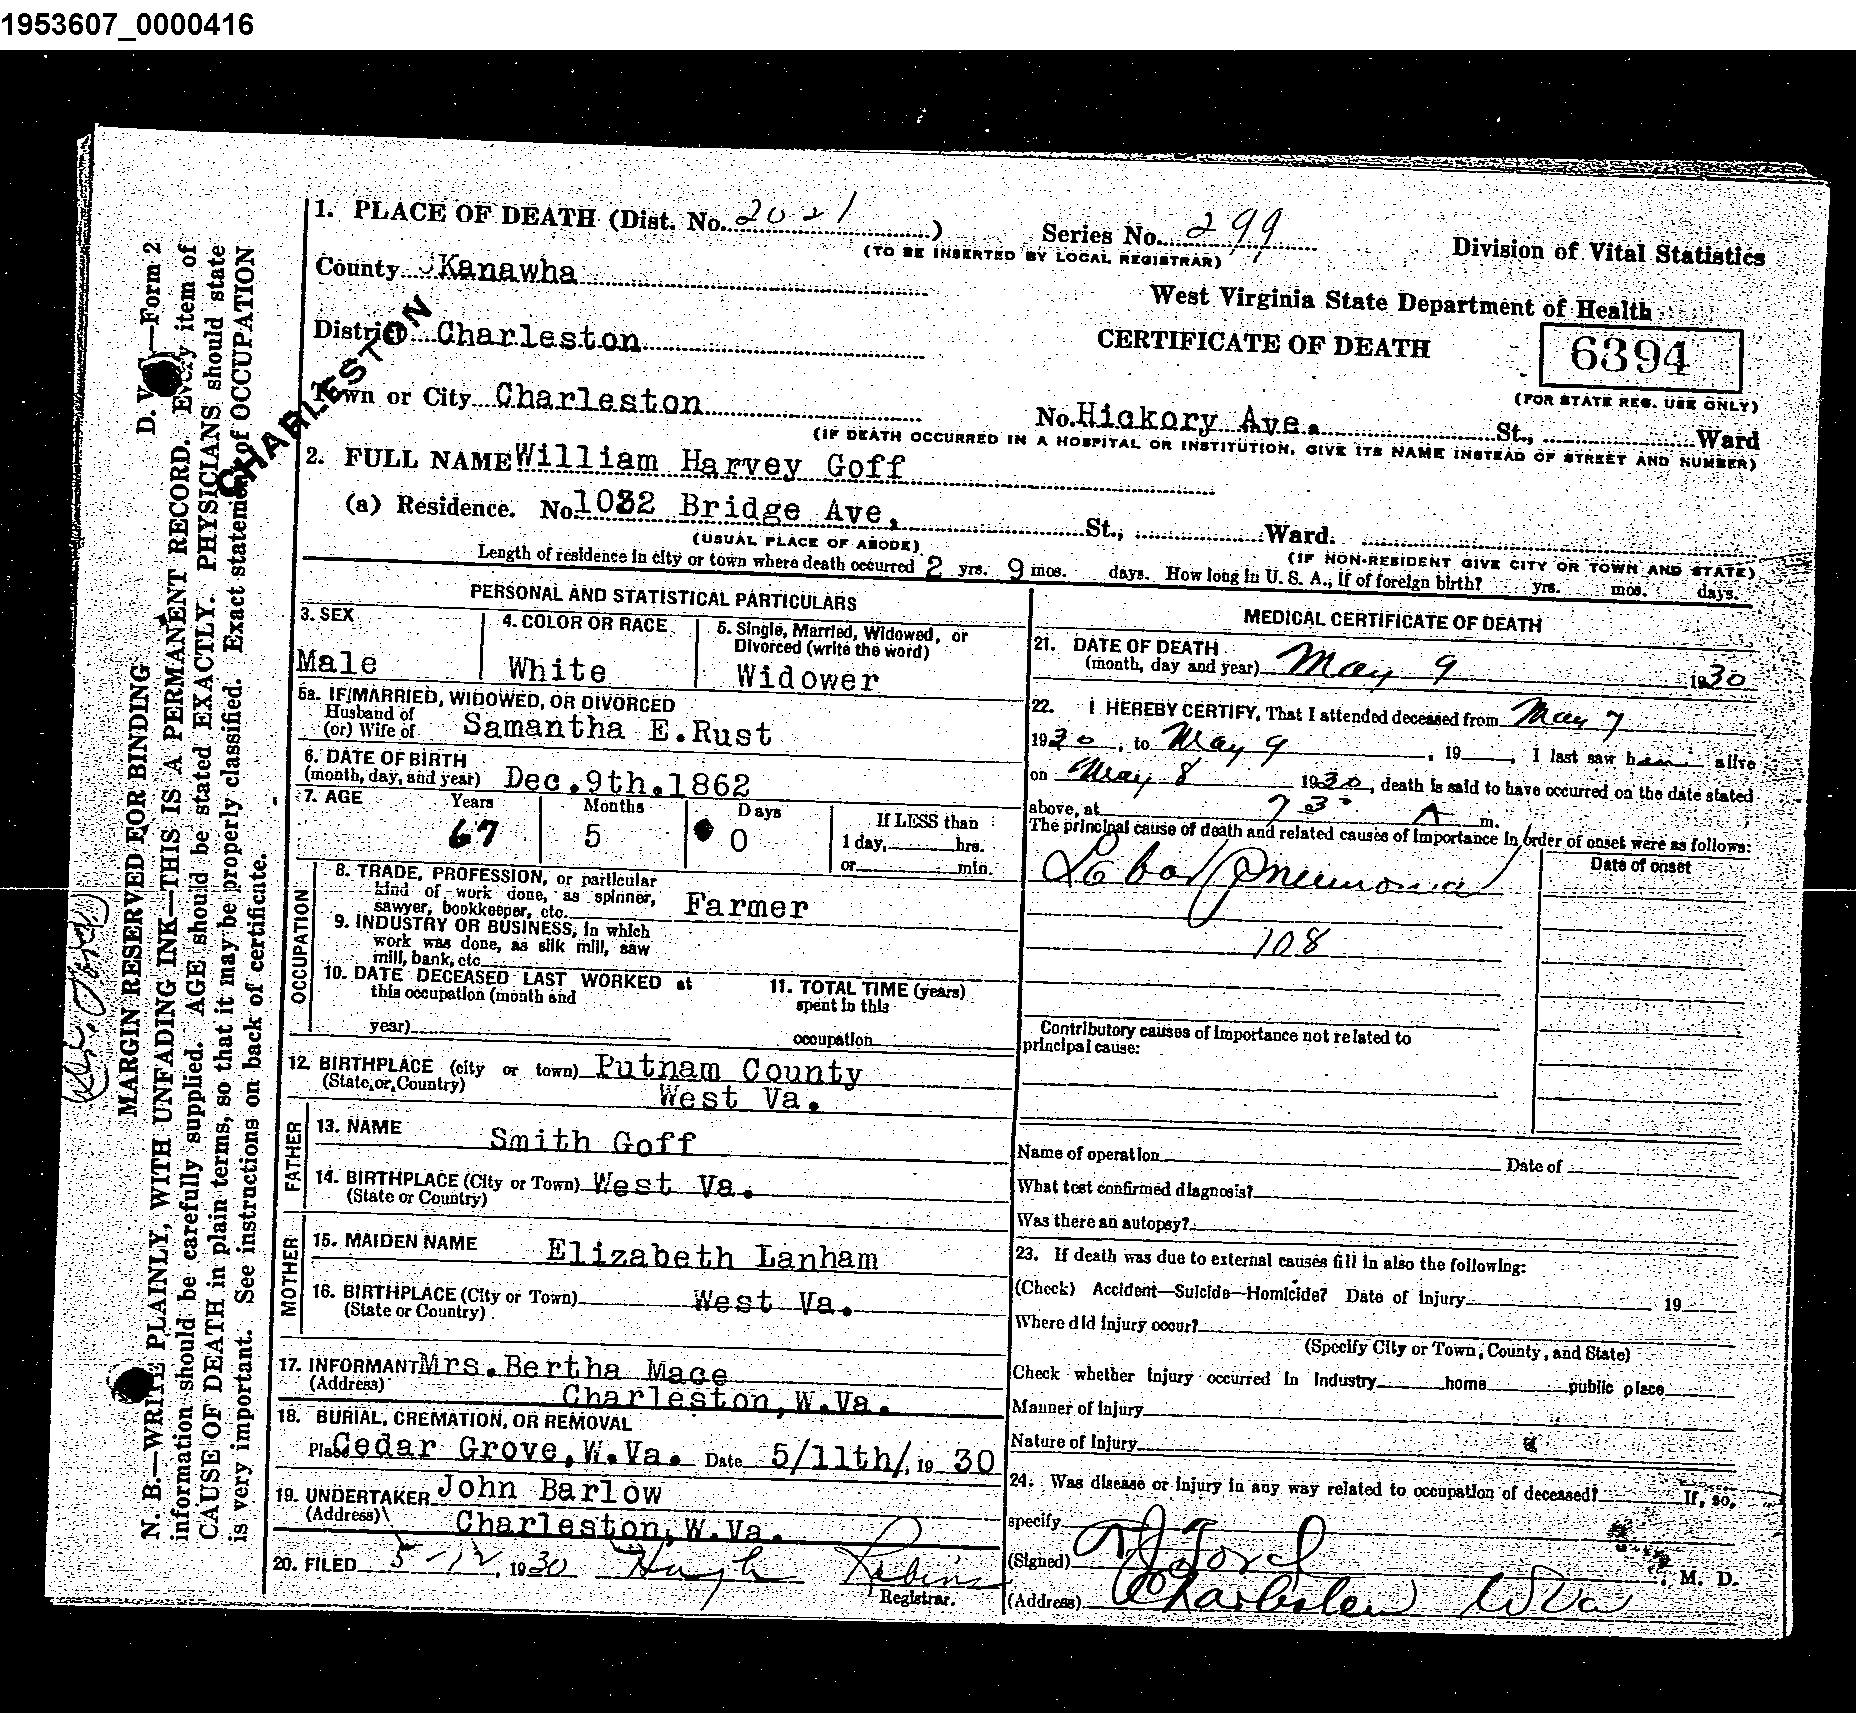 1953607_0000416
1. PLACE OF DEATH (Dist. No. 2021) Series No. 299
(TO BE INSERTED BY LOCAL REGISTRAR)
Division of Vital Statistics
County Kanawha
West Virginia State Department of Health
District Charleston
CERTIFICATE OF DEATH
6394
(FOR STATE REG. USE ONLY)
CHARLESTON
Town or City Charleston No. Hickory Ave. St., Ward
(IF DEATH OCCURRED IN A HOSPITAL OR INSTITUTION, GIVE ITS NAME INSTEAD OF STREET AND NUMBER)
2. FULL NAME William Harvey Goff
(a) Residence. No. 1032 Bridge Ave, St., Ward.
(USUAL PLACE OF ABODE) (IF NON-RESIDENT GIVE CITY OR TOWN AND STATE)
Length of residence in city or town where death occurred 2 yrs. 9 mos. days. How long in U. S. A., if of foreign birth? yrs. mos. days.
PERSONAL AND STATISTICAL PARTICULARS
3. SEX 4. COLOR OR RACE 5. Single, Married, Widowed, or
Divorced (write the word)
Male White Widower
5a. IF MARRIED, WIDOWED, OR DIVORCED
Husband of
(or) Wife of Samantha E.Rust
6. DATE OF BIRTH
(month, day, and year) Dec.9th.1862
7. AGE Years Months Days If LESS than
67 5 0 1 day, hrs.
or min.
OCCUPATION
8. TRADE, PROFESSION, or particular
kind of work done, as spinner,
sawyer, bookkeeper, etc. Farmer
9. INDUSTRY OR BUSINESS, in which
work was done, as silk mill, saw
mill, bank, etc
10. DATE DECEASED LAST WORKED at
this occupation (month and
year)
11. TOTAL TIME (years)
spent in this
occupation
12. BIRTHPLACE (city or town) Putnam County
(State or Country) West Va.
FATHER
13. NAME Smith Goff
14. BIRTHPLACE (City or Town) West Va.
(State or Country)
MOTHER
15. MAIDEN NAME Elizabeth Lanham
16. BIRTHPLACE (City or Town) West Va.
(State or Country)
17. INFORMANT Mrs.Bertha Mace
(Address) Charleston,W.Va.
18. BURIAL, CREMATION, OR REMOVAL
Place Cedar Grove,W.Va. Date 5/11th/, 19 30
19. UNDERTAKER John Barlow
(Address) Charleston,W.Va.
20. FILED 5-12, 1930 Hugh Robins
Registrar.
MEDICAL CERTIFICATE OF DEATH
21. DATE OF DEATH
(month, day and year) May 9 1930
22. I HEREBY CERTIFY, That I attended deceased from May 7
1930, to May 9, 19, I last saw him alive
on May 8 1930, death is said to have occurred on the date stated
above, at 730 A m.
The principal cause of death and related causes of importance in order of onset were as follows:
Date of onset
Lobar Pneumonia
108
Contributory causes of importance not related to
principal cause:
Name of operation Date of
What test confirmed diagnosis?
Was there an autopsy?
23. If death was due to external causes fill in also the following:
(Check) Accident—Suicide—Homicide? Date of injury 19
Where did injury occur?
(Specify City or Town, County, and State)
Check whether injury occurred in Industry home public place
Manner of injury
Nature of injury
24. Was disease or injury in any way related to occupation of deceased? If, so,
specify
(Signed) Ford, M. D.
(Address) Charleston W Va
D. V. S.—Form 2
MARGIN RESERVED FOR BINDING
N. B.—WRITE PLAINLY, WITH UNFADING INK—THIS IS A PERMANENT RECORD. Every item of
information should be carefully supplied. AGE should be stated EXACTLY. PHYSICIANS should state
CAUSE OF DEATH in plain terms, so that it may be properly classified. Exact statement of OCCUPATION
is very important. See instructions on back of certificate.